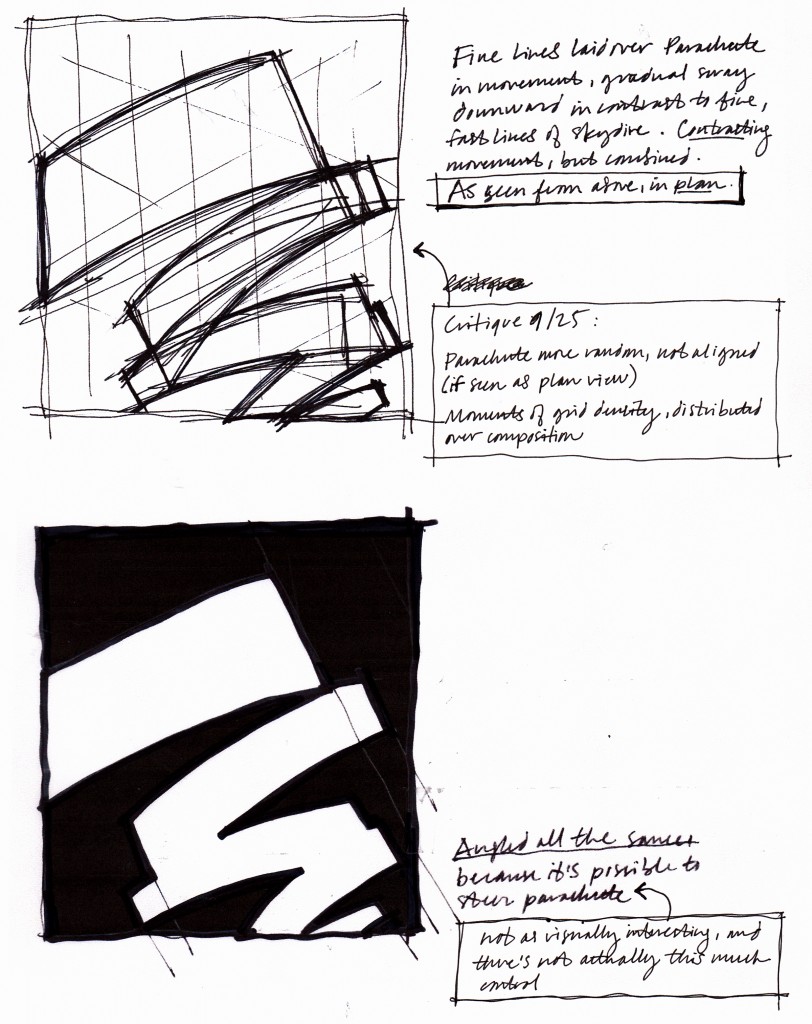 Fine lines laid over Parachute
in movement, gradual sway
downward in contrast to fine,
fast lines of skydive. Contrasting
movement, but combined.
As seen from above, in plan.
Critique 9/25:
Parachute more random, not aligned
(if seen as plan view)
Moments of grid density, distributed
over composition
Angled all the same
because it's possible to
steer parachute
not as visually interesting, and
there's not actually this much
control